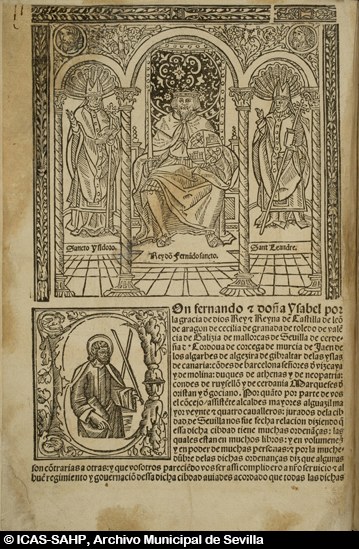 Sancto Ysidoro.
Rey dõ Fernãdo sancto.
Sant Leandre.
On fernando ⁊ doña Ysabel por
la gracia de dios Rey ⁊ Reyna de Castilla de leõ
de aragon de cecilia de granada de toledo de valé
cia de Galizia de mallorcas de Seuilla de cerde
ña ⁊ Cordoua de corcega de murcia de Jaen de
los algarbes de algezira de gibraltar de las yslas
de canaria: cõdes de barcelona señores d vizcaya
y de molina: duques de athenas y de neopatria:
condes de ruysellõ y de cerdania. Marqueses d
oristan y d gociano. Por quãto por parte de vos
el cõcejo assistẽte alcaldes mayores alguazil ma
yor veynte ⁊ quatro caualleros: jurados dela cib
dad de Seuilla nos fue fecha relacion diziẽdo q̃
essa dicha cibdad tiene muchas ordenãças: las
quales estan en muchos libros: y en volumenes
y en poder de muchas personas: y por la muche
dũbre delas dichas ordenanças diz que algunas
son cõtrarias a otras: y que vosotros pareciẽdo vos ser assi complidero a nr̃o seruicio: ⁊ al
buẽ regimiento y gouernaciõ dessa dicha cibdad auiades acordado que todas las dichas
© ICAS-SAHP, Archivo Municipal de Sevilla